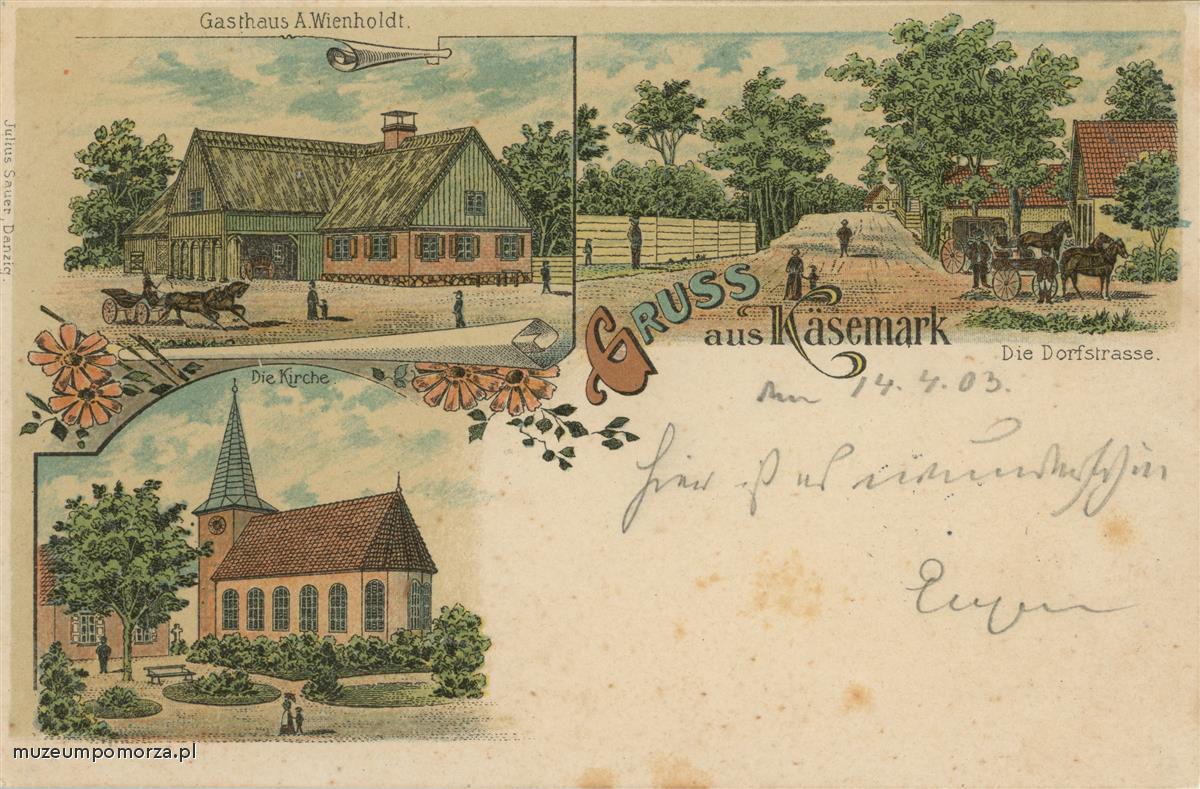 Gasthaus A. Wienholdt.
Julius Sauer, Danzig.
GRUSS
aus Käsemark
Die Dorfstrasse.
Die Kirche
14.4.03.
Hier ist es wunderschön
Eugen
muzeumpomorza.pl